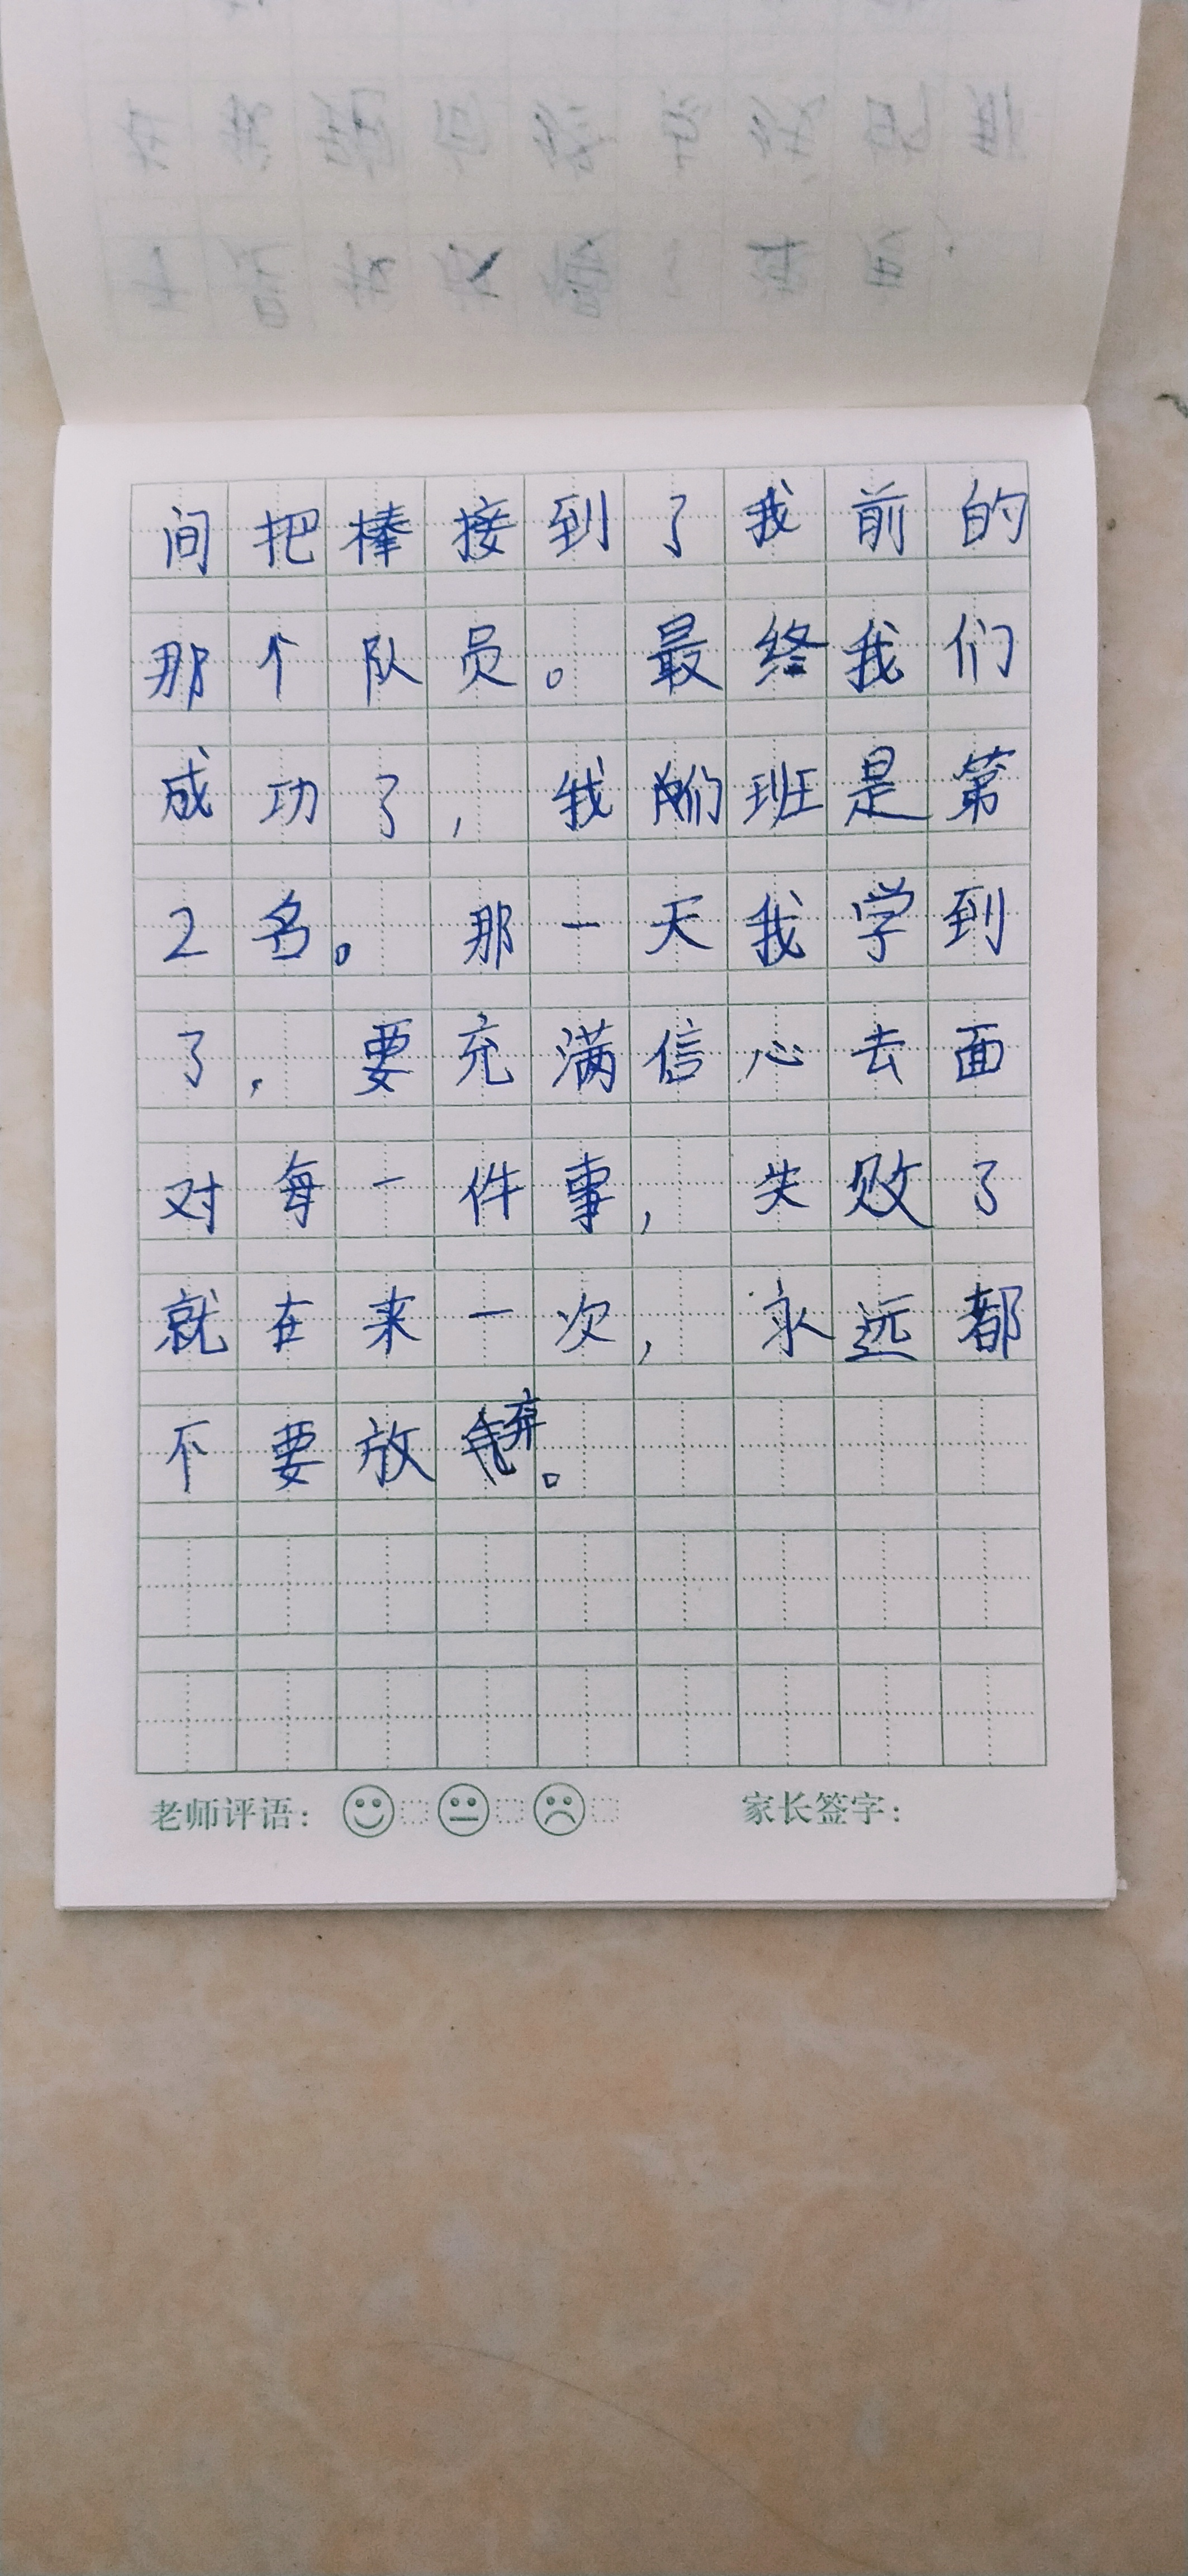 间把棒接到了我前的
那个队员。最终我们
成功了，我们班是第
2名。那一天我学到
了，要充满信心去面
对每一件事，失败了
就在来一次，永远都
不要放弃。
老师评语： 家长签字：